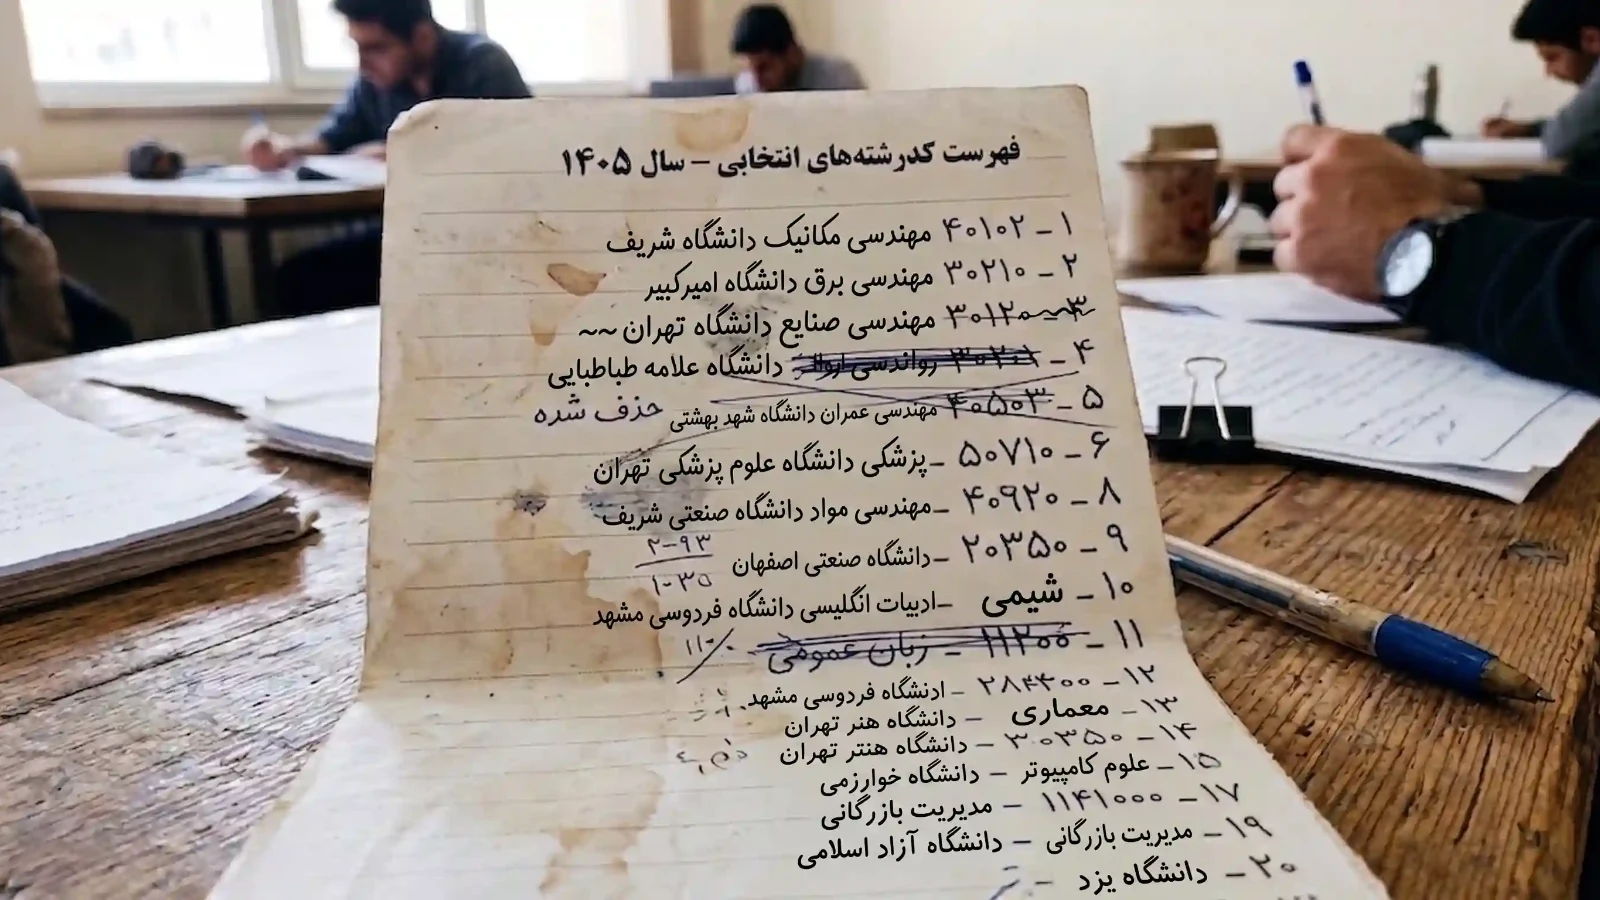 فهرست کدرشته‌های انتخابی – سال ۱۴۰۵
۱ – ۴۰۱۰۲ مهندسی مکانیک دانشگاه شریف
۲ – ۳۰۲۱۰ مهندسی برق دانشگاه امیرکبیر
۳ – ۳۰۱۲۰ مهندسی صنایع دانشگاه تهران ~~
۴ – دانشگاه علامه طباطبایی
۵ – ۴۰۵۰۳ مهندسی عمران دانشگاه شهد بهشتی حذف شده
۶ – ۵۰۷۱۰ – پزشکی دانشگاه علوم پزشکی تهران
۸ – ۴۰۹۲۰ – مهندسی مواد دانشگاه صنعتی شریف
۹ – ۲۰۳۵۰ – دانشگاه صنعتی اصفهان
۲-۹۳
۱-۳۵
۱۰ – شیمی – ادبیات انگلیسی دانشگاه فردوسی مشهد
۱۱ – ۱۱۲۰۰ – زبان عمومی
۱۲ – ۲۸۴۴۰۰ – ادنشگاه فردوسی مشهد
۱۳ – معماری – دانشگاه هنر تهران
۱۴ – ۳۰۳۵۰ – دانشگاه هنتر تهران
۱۵ – علوم کامپیوتر – دانشگاه خوارزمی
۱۷ – ۱۱۴۱۰۰۰ – مدیریت بازرگانی
۱۹ – مدیریت بازرگانی – دانشگاه آزاد اسلامی
۲۰ – دانشگاه یزد –